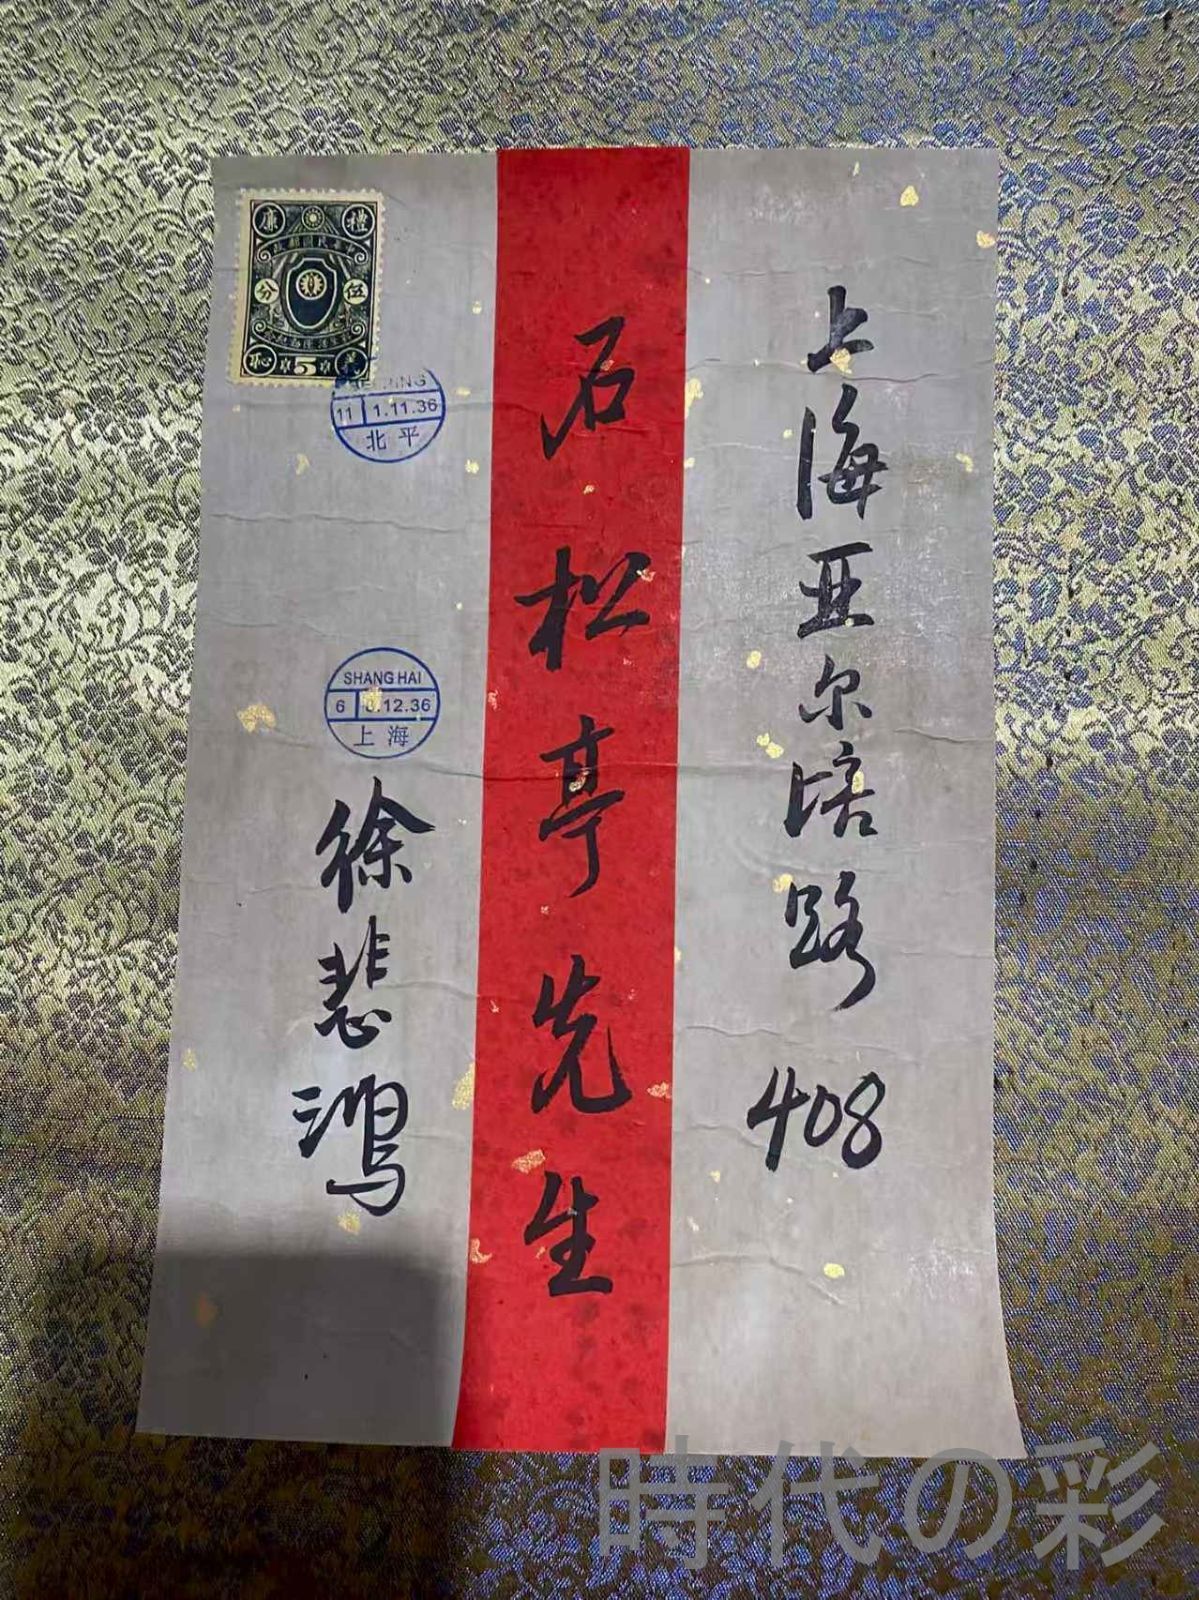 上海亚尔培路408
石松亭先生
徐悲鸿
禮 廉
伍 分
5
11 1.11.36
北平
SHANG HAI
6 .12.36
上海
時代の彩